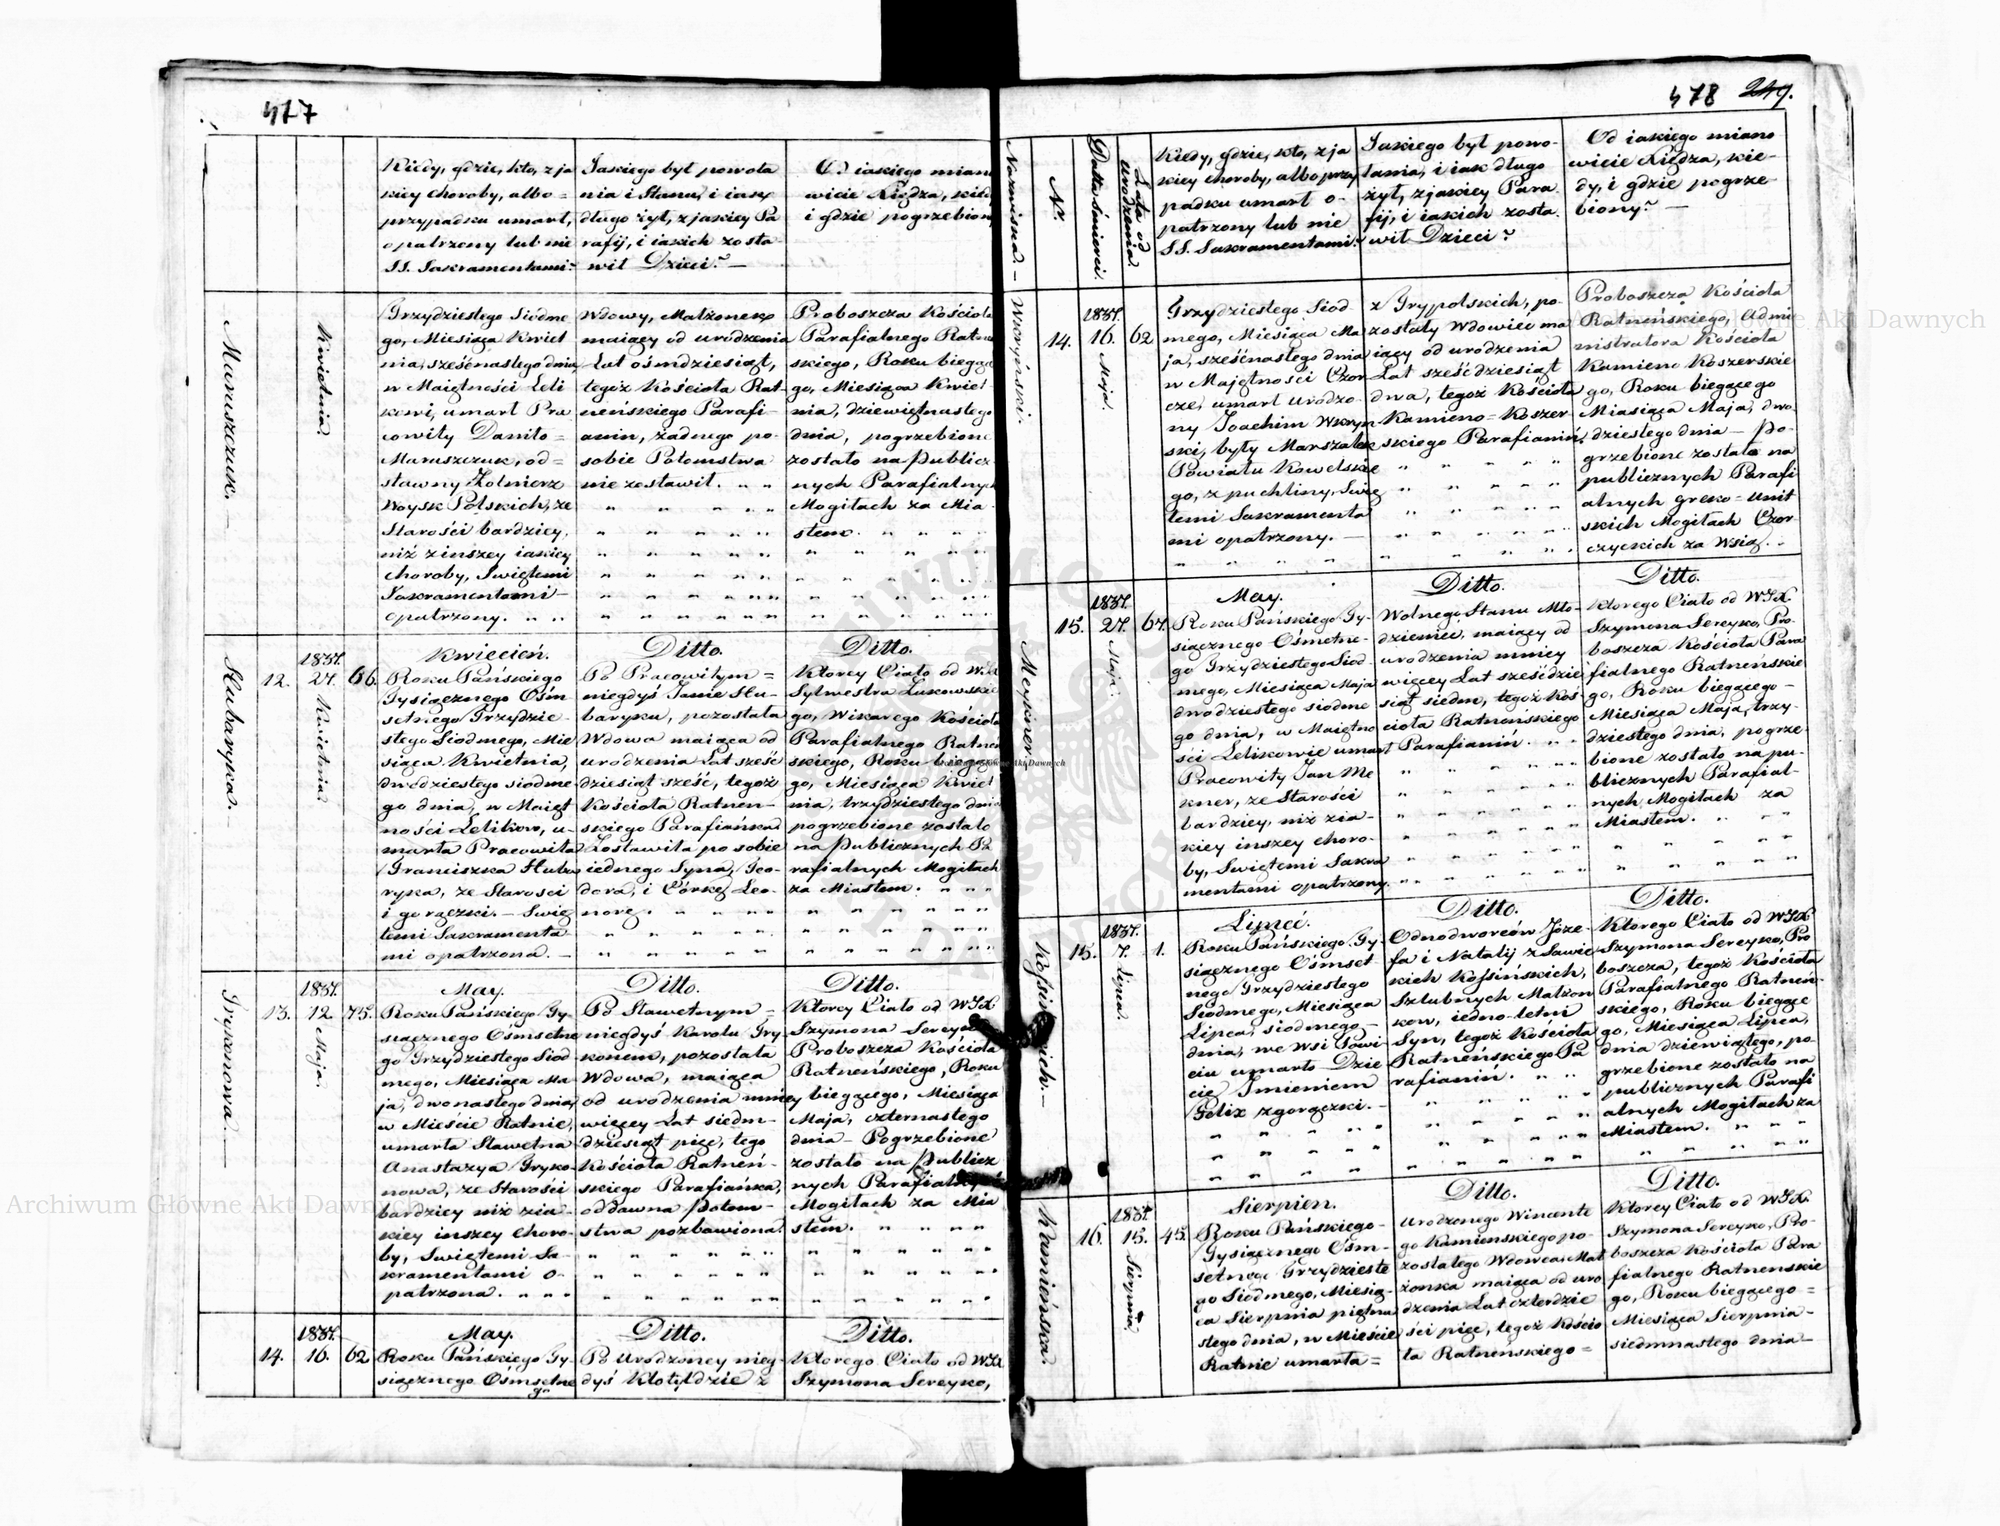 477
Kiedy, gdzie, kto, z ja
kiey choroby, albo=
przypadku umarł,
opatrzony lub nie
SS. Sakramentami?
Jakiego był powoła
nia i Stanu, i iak
długo żył, z jakiey Pa
rafij, i iakich zosta
wił Dzieci? —
Od iakiego miano
wicie Xiędza, kiedy
i gdzie pogrzebiony
Maruszczuk. —
Kwietnia.
Trzydziestego Siódme
go, Miesiąca Kwiet
nia, sześćnastego dnia
w Maiętności Leli
kowi, umarł Pra
cowity Daniło=
Maruszczuk, od=
stawny Żołnierz
Woysk Polskich, ze
Starości bardziey,
niż z inszey iakiey
choroby, Świętemi
Sakramentami—
opatrzony. " "
Wdowy, Małżonek
maiący od urodzenia
Lat ośmdziesiąt,
tegoż Kościoła Rat-
neńskiego Parafi-
anin, żadnego po-
sobie Potomstwa
nie zostawił. " "
Proboszcza Kościoła
Parafialnego Ratne
skiego, Roku bieżące
go, Miesiąca Kwiet
nia, dziewiętnastego
dnia, pogrzebione
zostało na Publicz
nych Parafialnych
Mogiłach za Mia
stem. " " " "
Hubaryka. —
12.
1837.
27.
Kwietnia.
66.
Kwiecień.
Roku Pańskiego
Tysiącznego Ośm
setnego Trzydzie-
stego Siódmego, Mie
siąca Kwietnia,
dwódziestego siódme
go dnia, w Maięt
ności Lelikow, u-
marła Pracowita
Franciszka Huba
ryka, ze Starości
i gorączki. — Świę
temi Sakramenta
mi opatrzona. —
Ditto.
Po Pracowitym=
niegdyś Janie Hu-
baryku, pozostała
Wdowa maiąca od
urodzenia Lat sześć
dziesiąt sześć, tegoż
Kościoła Ratnen-
skiego Parafianka
Zostawiła po sobie
iednego Syna, Teo-
dora, i Córkę Leo-
norę. " " " "
Ditto.
Ktorey Ciało od W.X
Sylwestra Lukowskie
go, Wikarego Kościoła
Parafialnego Ratneń
skiego, Roku bieżące
go, Miesiąca Kwiet
nia, trzydziestego dnia
pogrzebione zostało
na Publicznych Pa
rafialnych Mogiłach
za Miastem. " " "
Trykonowa. —
13.
1837.
12.
Maja.
75.
May.
Roku Pańskiego Ty-
siącznego Ośmsetne
go Trzydziestego Siód
mego, Miesiąca Ma-
ja, dwónastego dnia,
w Mieście Ratnie,
umarła Sławetna
Anastazya Tryko-
nowa, ze Starości
bardziey niż z ia-
kiey inszey choro-
by, Świętemi Sa-
kramentami o-
patrzona. " " "
Ditto.
Po Sławetnym=
niegdyś Karolu Try
konem, pozostała
Wdowa, maiąca
od urodzenia mniey
więcey Lat siedm-
dziesiąt pięć, tego
Kościoła Ratneń-
skiego Parafianka,
oddawna Potom-
stwa pozbawiona.
Ditto.
Ktorey Ciało od WJX
Szymona Sereyko
Proboszcza Kościoła
Ratneńskiego, Roku
bieżącego, Miesiąca
Maja, czternastego
dnia— Pogrzebione
zostało na Publicz
nych Parafialnych
Mogiłach za Mia
stem. " " " "
14.
1837.
16.
62
May.
Roku Pańskiego Ty-
siącznego Ośmsetne
go
Ditto.
Po Urodzoney nieg-
dyś Kłotyldzie z
Ditto.
Ktorego Ciało od WJX
Szymona Sereyko,
478 249.
Nazwiska. —
Nr.
Datta śmierci.
Lata od
urodzenia.
Kiedy, gdzie, kto, z ja
kiey choroby, albo przy
padku umarł o-
patrzony lub nie
SS. Sakramentami?
Jakiego był powo-
łania, i iak długo
żył, z jakiey Para
fij, i iakich zosta
wił Dzieci?
Od iakiego miano
wicie Xiędza, kie-
dy, i gdzie pogrze-
biony? —
14.
1837.
16.
Maja.
62
Trzydziestego Siód
mego, Miesiąca Ma
ja, sześćnastego dnia
w Majętności Czor
cze, umarł Urodzo-
ny Joachim
ski, były Marszałek
Powiatu Kowelskie
go, z puchliny, Świę
temi Sakramenta
mi opatrzony. —
z Trypolskich, po-
zostały Wdowiec ma
iący od urodzenia
Lat sześćdziesiąt
dwa, tegoż Kościoła
Kamieno=Koszer-
skiego Parafianin.
Proboszcza Kościoła
Ratneńskiego, Admi
nistratora Kościoła
Kamieno Koszerskie
go, Roku bieżącego
Miasiąca Maja, dwó-
dziestego dnia — Po-
grzebione zostało na
publicznych Parafi
alnych greko=Unit
skich Mogiłach Czor-
czyckich za Wsią. "
Meykner. —
15.
1837.
27.
Maja.
67.
May.
Roku Pańskiego Ty-
siącznego Ośmetne-
go Trzydziestego Siód-
mego, Miesiąca Maja
dwódziestego siódme
go dnia, w Maiętno
ści Lelikowie umarł
Pracowity Jan Me
kner, ze Starości
bardziey, niż z ia-
kiey inszey choro-
by, Świętemi Sakra
mentami opatrzony.
Ditto.
Wolnego Stanu Mło-
dzieniec, maiący od
urodzenia mniey
więcey Lat sześćdzie
siąt siedm, tegoż Koś
cioła Ratnenskiego
Parafianin. " "
Ditto.
Ktorego Ciało od WJX.
Szymona Sereyko, Pro-
boszcza Kościoła Para
fialnego Ratneńskie
go, Roku bieżącego—
Miesiąca Maja, trzy-
dziestego dnia, pogrze-
bione zostało na pu-
blicznych Parafial-
nych Mogiłach za
Miastem. " "
15.
1837.
7.
Lipca
1.
Lipiec.
Roku Pańskiego Ty-
siącznego Ośmset-
nego Trzydziestego
Siódmego, Miesiąca
Lipca, siódmego—
dnia, we Wsi Powi
ciu umarło Dzie
cie Imieniem
Felix z gorączki. —
Ditto.
Odnodworców Józe-
fa i Natalij z Sawic
kich Kossińskich,
Szlubnych Małżon
kow, iedno-letni
Syn, tegoż Kościoła
Ratneńskiego Pa
rafianin. " "
Ditto.
Ktorego Ciało od WJX
Szymona Sereyko, Pro
boszcza, tegoż Kościoła
Parafialnego Ratneń-
skiego, Roku bieżące
go, Miesiąca Lipca,
dnia dziewiątego, po-
grzebione zostało na
publicznych Parafi
alnych Mogiłach za
Miastem. " " "
Kamieńska.
16.
1837.
15.
Sierpnia
45.
Sierpien.
Roku Pańskiego-
Tysiącznego Ośm-
setnego Trzydzieste
go Siódmego, Miesią-
ca Sierpnia piętna
stego dnia, w Mieście
Ratnie umarła=
Ditto.
Urodzonego Wincente
go Kamienskiego po-
zostałego Wdowca Mał
żonka maiąca od uro
dzenia Lat czterdzie
ści pięć, tegoż Kościo
ła Ratnenskiego=
Ditto.
Ktorey Ciało od WJX.
Szymona Sereyko, Pro-
boszcza Kościoła Para
fialnego Ratnenskie
go, Roku bieżącego=
Miesiąca Sierpnia—
siedmnastego dnia—
Archiwum Główne Akt Dawnych
Archiwum Główne Akt Dawnych
Archiwum Główne Akt Dawnych